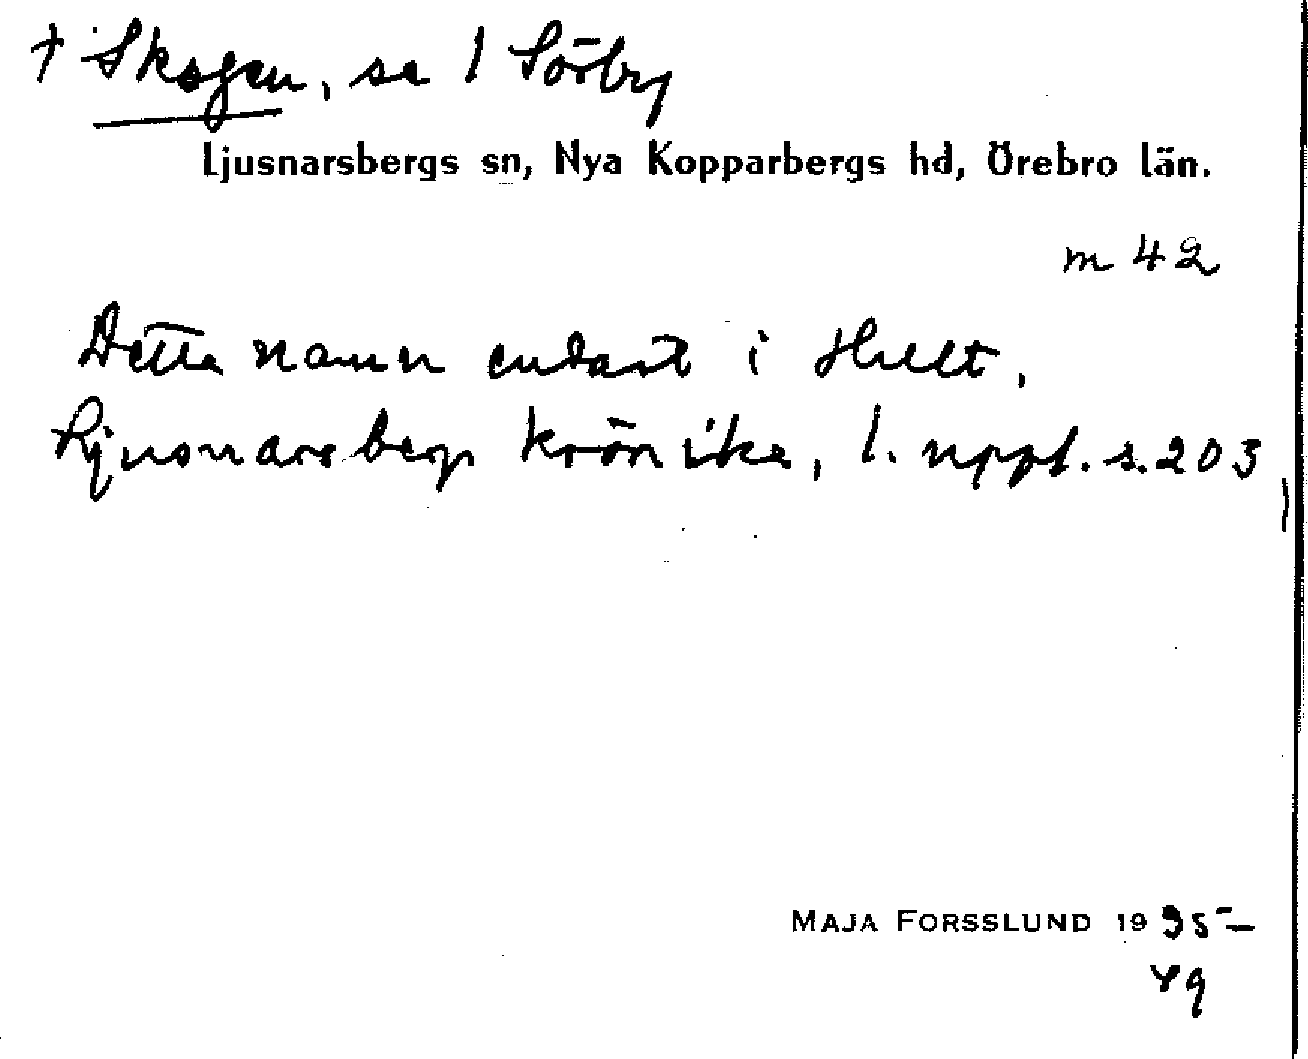 † Skogen, se 1 Sörby
Ljusnarsbergs sn, Nya Kopparbergs hd, Örebro län.
m 42
Detta namn endast i Hult,
Ljusnarsbergs krönika, 1. uppl. s. 203
MAJA FORSSLUND 1935–
49